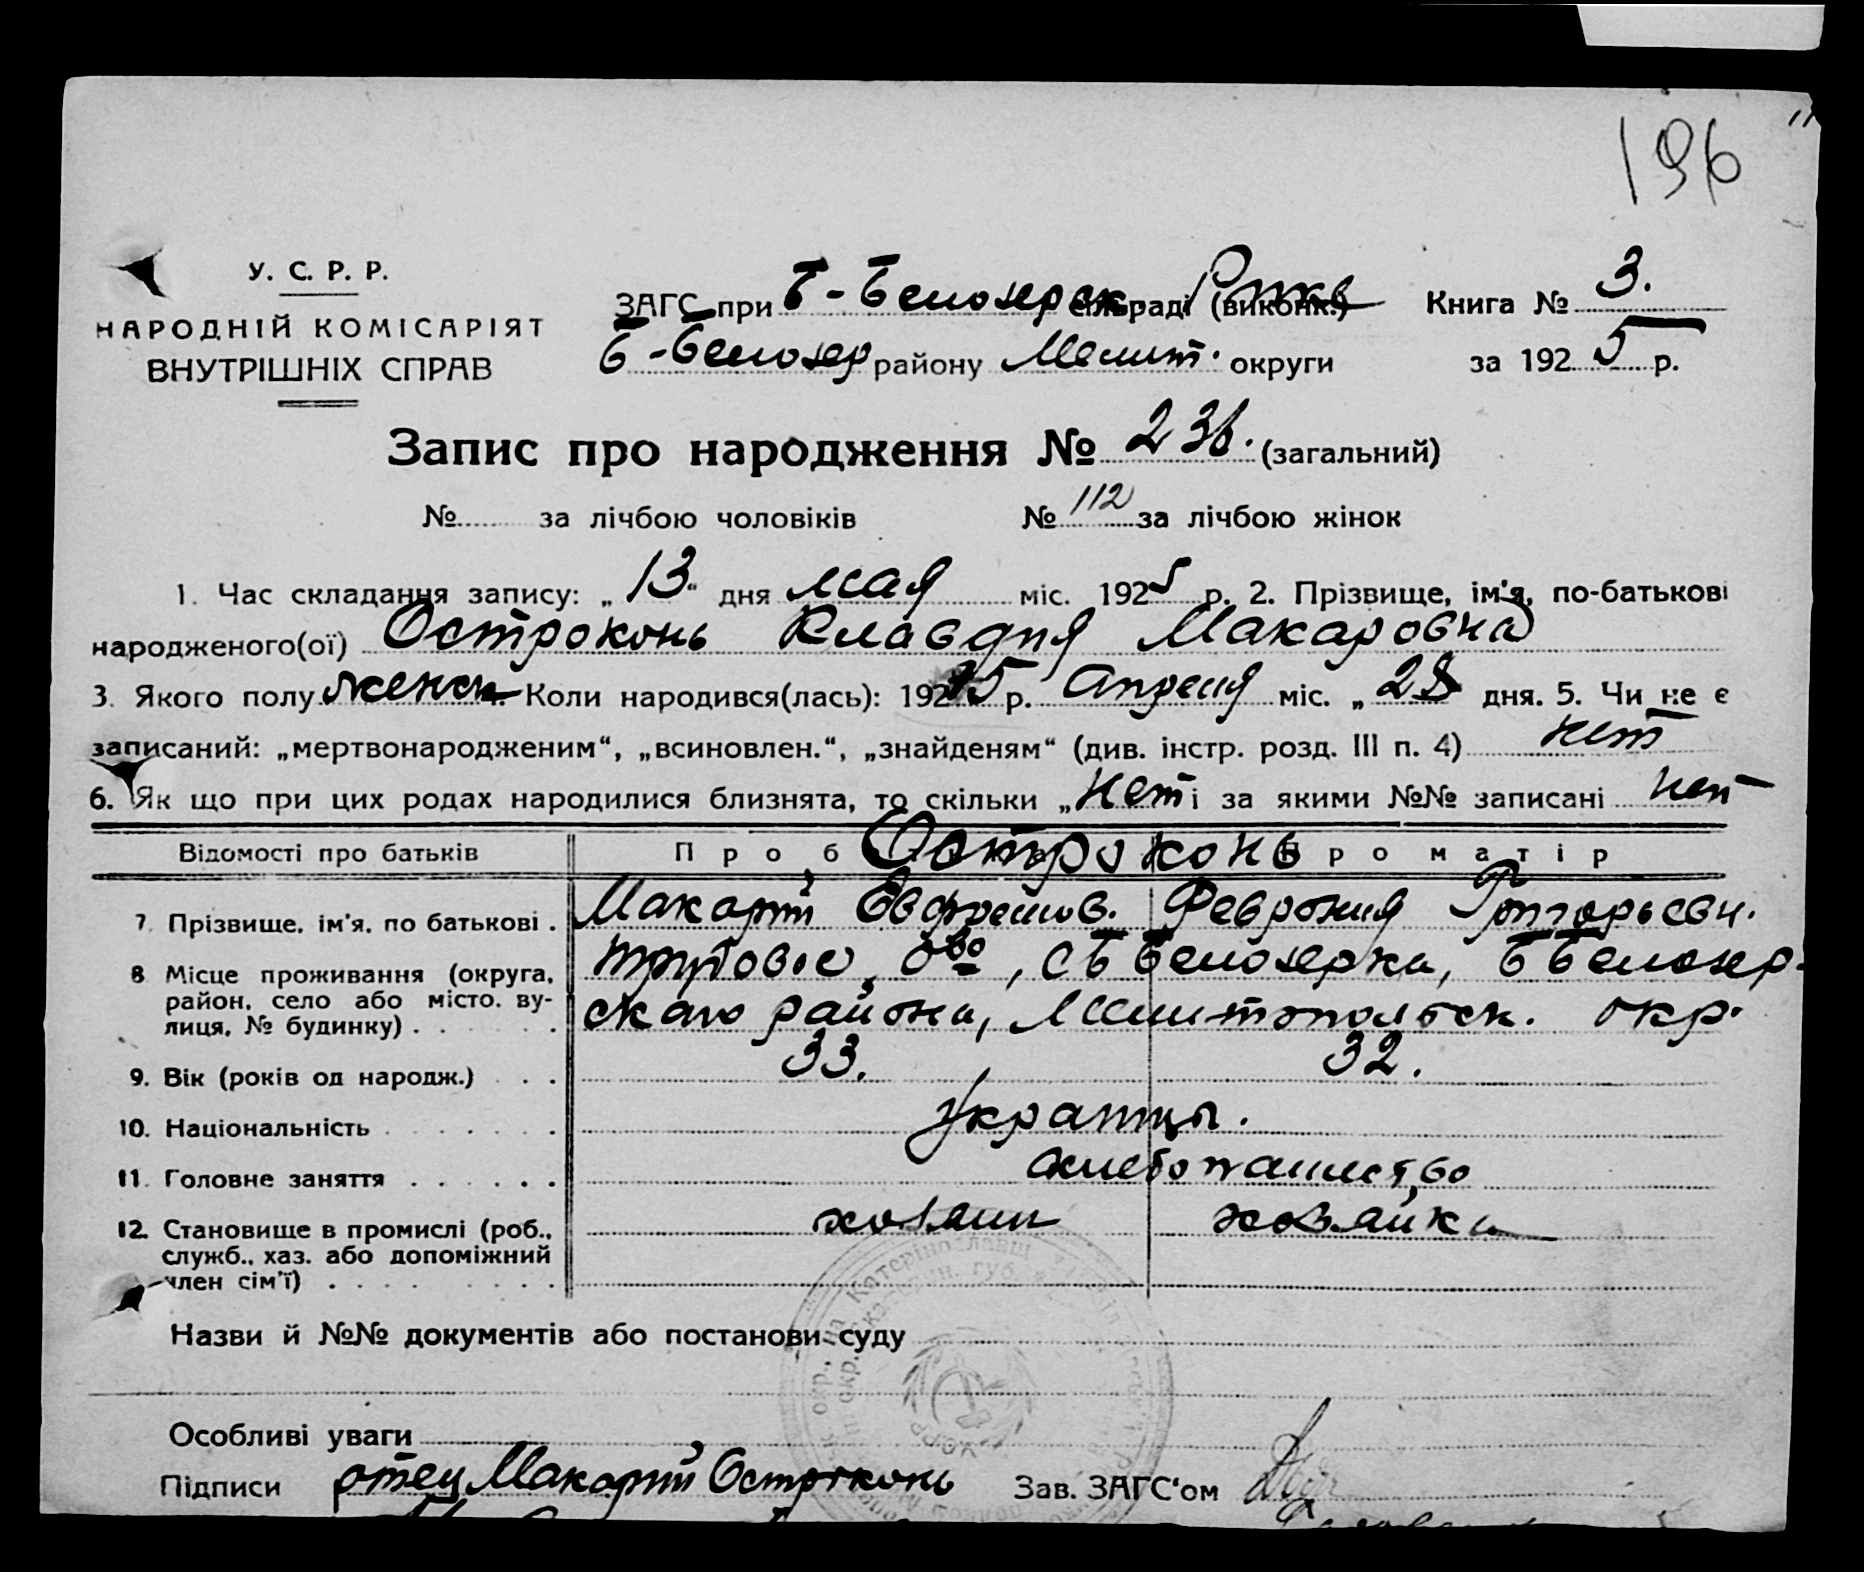 196
У. С. Р. Р.
НАРОДНІЙ КОМІСАРІЯТ
ВНУТРІШНІХ СПРАВ
ЗАГС при Б-Белозерск. сільраді (виконк.) Книга № 3.
Б-Белозер району Мелит. округи за 1925 р.
Запис про народження № 236. (загальний)
№ за лічбою чоловіків № 112 за лічбою жінок
1. Час складання запису: „13“ дня мая міс. 1925 р. 2. Прізвище, ім'я, по-батькові
народженого(ої) Остроконь Клавдия Макаровна
3. Якого полу женск 4. Коли народився(лась): 1925 р. Апреля міс. „28 дня. 5. Чи не є
записаний: „мертвонародженим“, „всиновлен.“, „знайденям“ (див. інстр. розд. III п. 4) нет
6. Як що при цих родах народилися близнята, то скільки „нет і за якими №№ записані нет
Відомості про батьків Про батька Про матір
Остроконь
7. Прізвище, ім'я, по батькові . Макарий Евфремов. Феврония Григорьевн.
8 Місце проживання (округа, район, село або місто, вулиця, № будинку) . . . . . . Трудовое, о-во, с Б Белозерка, Б Белозер-
скаго района, Мелитопольск. окр.
9. Вік (років од народж.) . . . 33. 32.
10. Національність . . . . . . . Украинцы.
11. Головне заняття . . . . . . хлебопашество
12. Становище в промислі (роб., служб., хаз. або допоміжний член сім'ї) . . . . . . . . хозяин хозяйка
Назви й №№ документів або постанови суду
Особливі уваги
Підписи отец Макарий Остроконь Зав. ЗАГС'ом